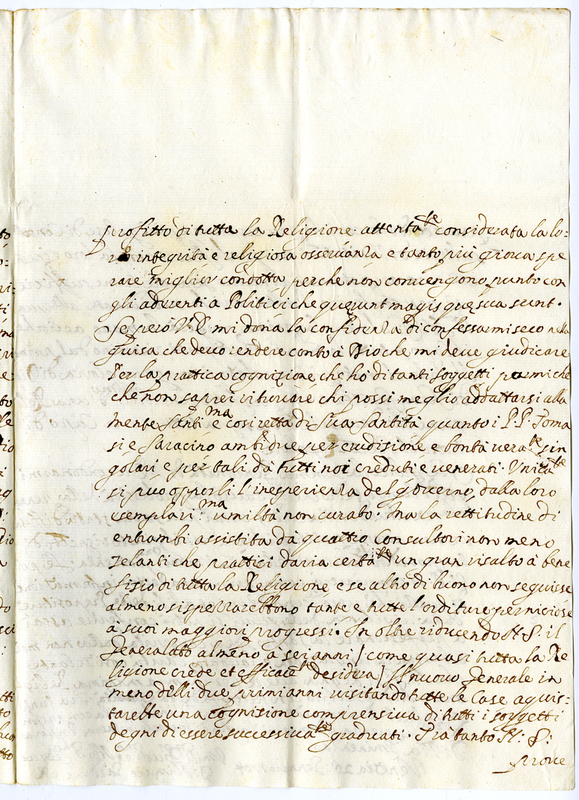 profitto di tutta la Religione attenta.te considerata la lo-
ro integrità e religiosa osservanza e tanto più giova spe
rare miglior condotta perche non convengono punto con
gli aderenti a Politici che querunt magis que sua sunt.
Se però V.E. mi dona la confidenza di confessarmi seco nella
guisa che devo rendere conto à Dio che mi deve giudicare
Per la prattica cognizione che hò di tanti soggetti par mi che
che non saprei ritrovare chi possi meglio addattarsi alla
mente Santi.ma e così retta di Sua Santità quanto i P.P. Toma
si e Saracino ambidue per erudisione e bontà vera.te sin
golari e per tali da tutti noi creduti e venerati. Unita.te
si puo opporli l'inesperienza del governo, dalla loro
esemplari.ma umiltà non curato. Ma la rettitudine di
entrambi assistita da quattro consultori non meno
zelanti che prattici daria certa.te un gran risalto à bene
fisio di tutta la Religione e se altro di buono non seguisse
almeno si spezzarebbono tante e tutte l'orditure perniciose
à suoi maggiori progressi. In oltre riducendo N.S. il
Generalato almeno à sei anni [come quasi tutta la Re
ligione crede et efficace.te desidera] Il nuovo Generale in
meno delli due primi anni visitando tutte le Case acquis-
tarebbe una cognisione comprensiva di tutti i soggetti
degni di essere successiva.te graduati. Fra tanto N: S:
prove